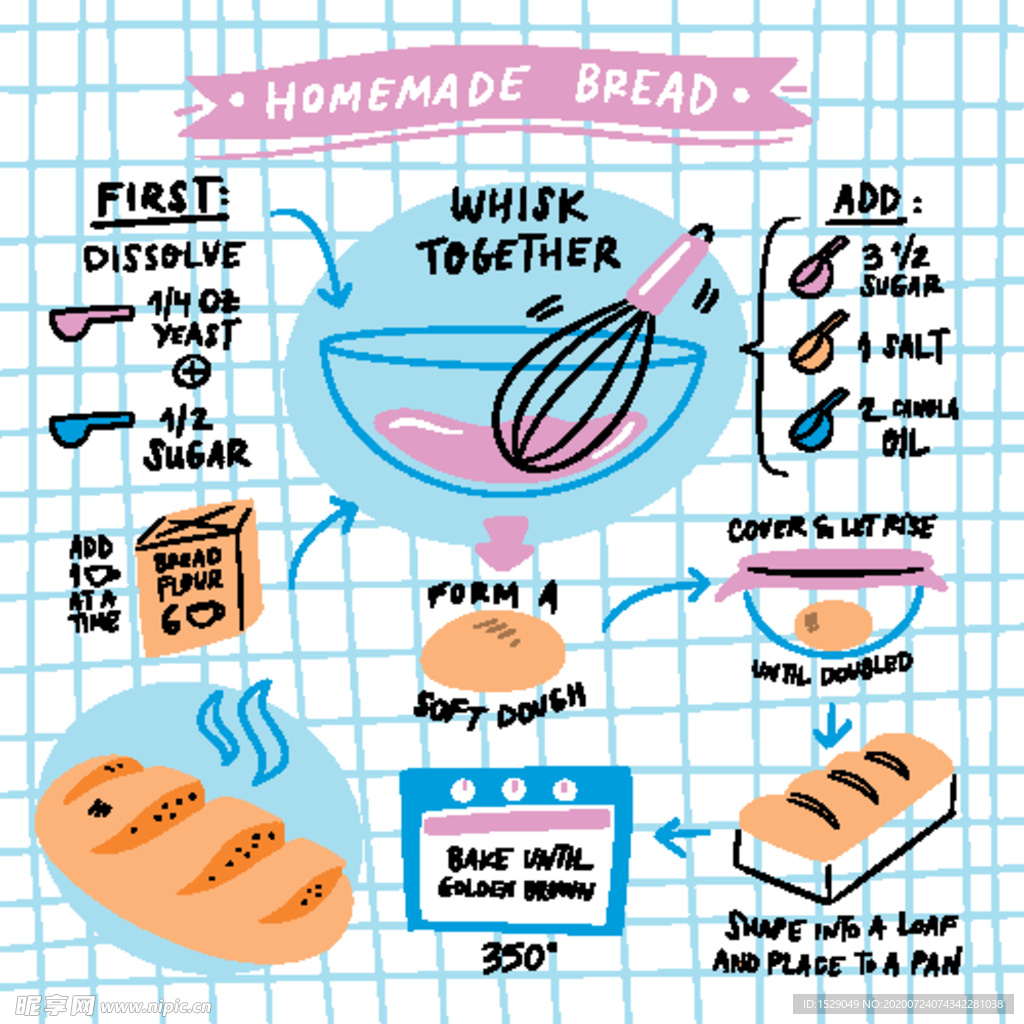 HOMEMADE BREAD
FIRST:
DISSOLVE
1/4 OZ
YEAST
+
1/2
SUGAR
WHISK
TOGETHER
ADD:
3 1/2
SUGAR
1 SALT
2 CANOLA
OIL
ADD
1
AT A
TIME
BREAD
FLOUR
6
FORM A
SOFT DOUGH
COVER & LET RISE
UNTIL DOUBLED
SHAPE INTO A LOAF
AND PLACE TO A PAN
BAKE UNTIL
GOLDEN BROWN
350°
昵享网 www.nipic.cn
ID:1529049 NO:20200724074342281038